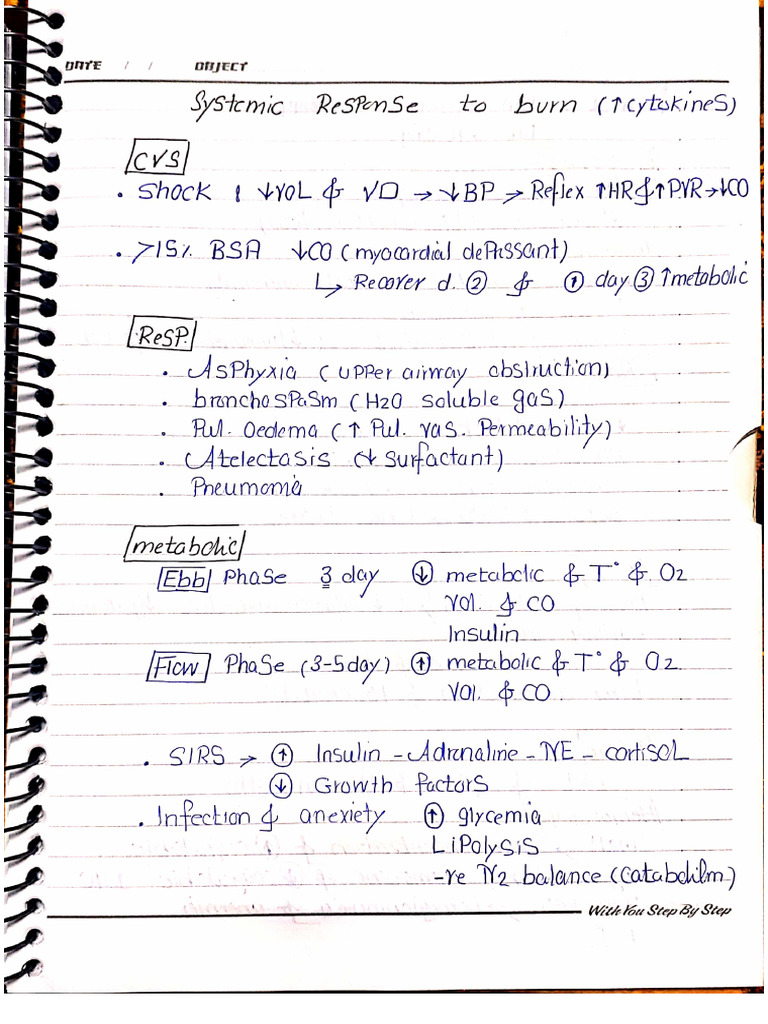 DATE / / OBJECT
Systemic Response to burn (↑cytokines)
CVS
• Shock : ↓VOL & VD → ↓BP → Reflex ↑HR & ↑PVR → ↓CO
• >15% BSA ↓CO (myocardial depressant)
↳ Recover d. ② & ↑ day ③ ↑metabolic
Resp.
• Asphyxia (upper airway obstruction)
• bronchospasm (H2O soluble gas)
• Pul. Oedema (↑ Pul. vas. Permeability)
• Atelectasis (↓ surfactant)
• Pneumonia
metabolic
Ebb Phase 3 day ↓ metabolic & T° & O2
Vol. & CO
Insulin
Flow Phase (3-5day) ↑ metabolic & T° & O2.
Vol. & CO.
• SIRS → ↑ Insulin - Adrenaline - NE - cortisol
↓ Growth factors
• Infection & anexiety ↑ glycemia
Lipolysis
-ve N2 balance (catabolilm)
With You Step By Step